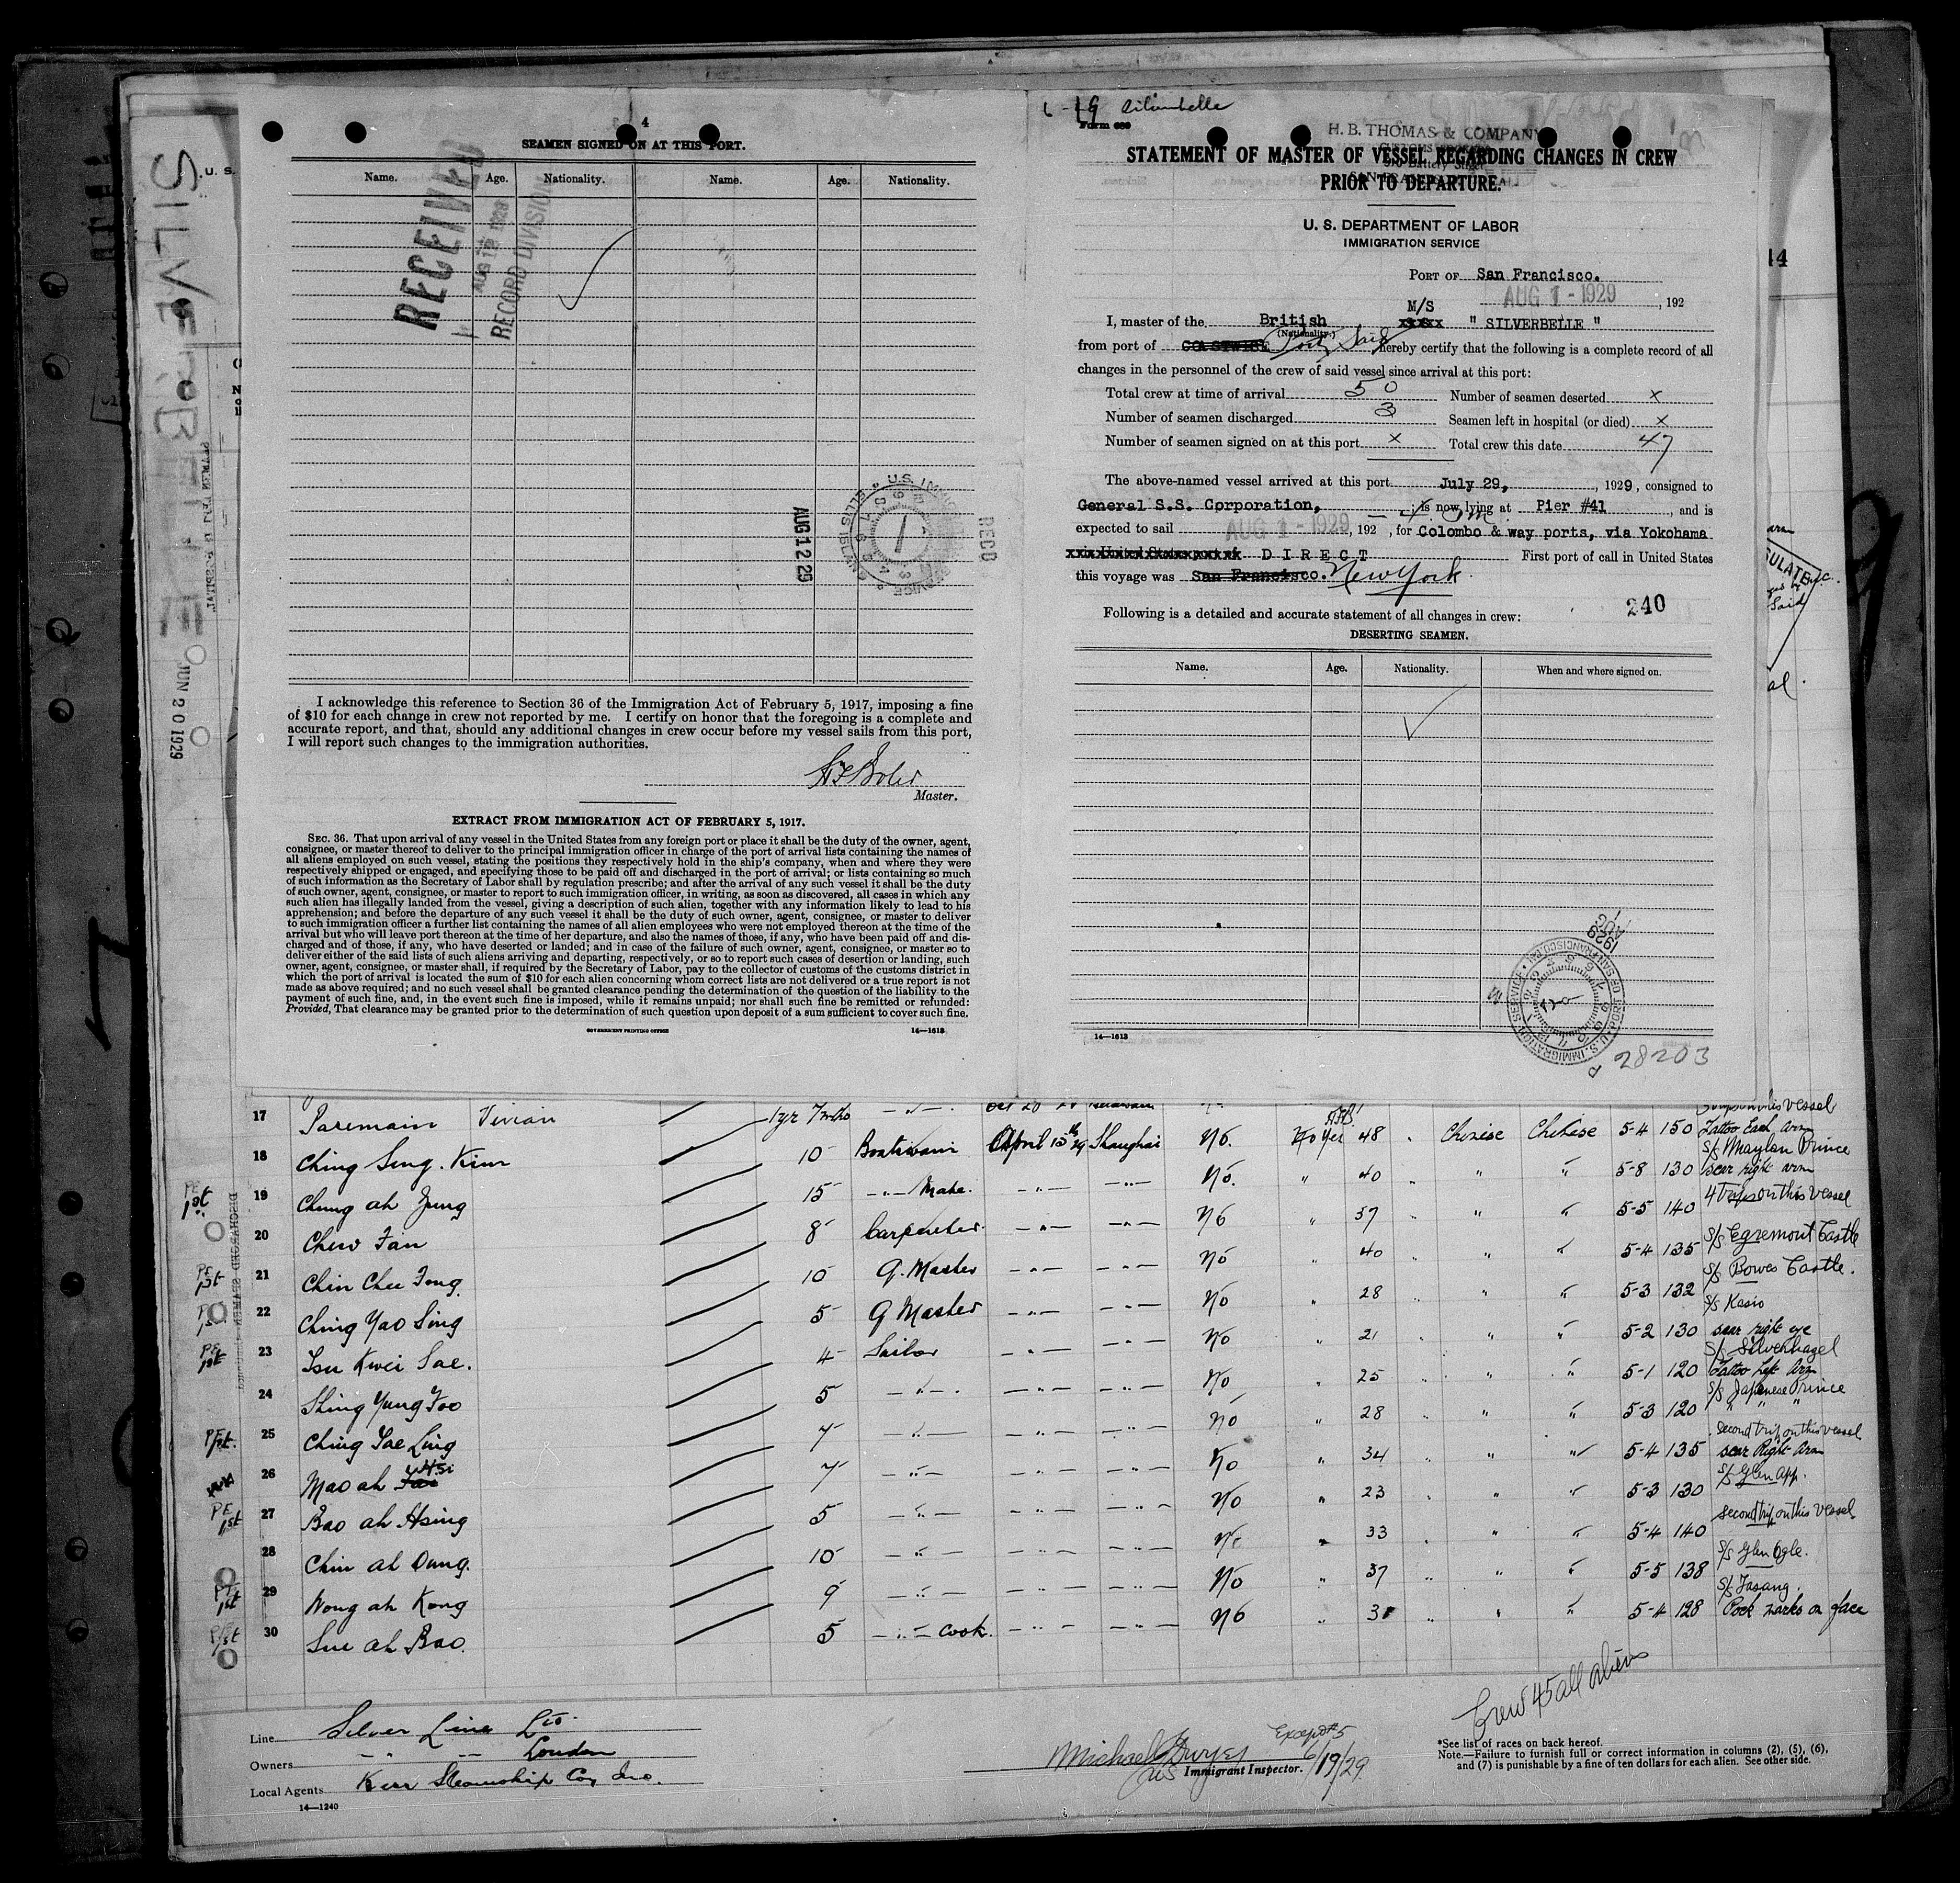 4
SEAMEN SIGNED ON AT THIS PORT.
Name. Age. Nationality. Name. Age. Nationality.
RECEIVED
AUG 12 1929
RECORD DIVISION
AUG 12 29
RECD
I acknowledge this reference to Section 36 of the Immigration Act of February 5, 1917, imposing a fine
of $10 for each change in crew not reported by me. I certify on honor that the foregoing is a complete and
accurate report, and that, should any additional changes in crew occur before my vessel sails from this port,
I will report such changes to the immigration authorities.
Master.
EXTRACT FROM IMMIGRATION ACT OF FEBRUARY 5, 1917.
SEC. 36. That upon arrival of any vessel in the United States from any foreign port or place it shall be the duty of the owner, agent,
consignee, or master thereof to deliver to the principal immigration officer in charge of the port of arrival lists containing the names of
all aliens employed on such vessel, stating the positions they respectively hold in the ship's company, when and where they were
respectively shipped or engaged, and specifying those to be paid off and discharged in the port of arrival; or lists containing so much
of such information as the Secretary of Labor shall by regulation prescribe; and after the arrival of any such vessel it shall be the duty
of such owner, agent, consignee, or master to report to such immigration officer, in writing, as soon as discovered, all cases in which any
such alien has illegally landed from the vessel, giving a description of such alien, together with any information likely to lead to his
apprehension; and before the departure of any such vessel it shall be the duty of such owner, agent, consignee, or master to deliver
to such immigration officer a further list containing the names of all alien employees who were not employed thereon at the time of the
arrival but who will leave port thereon at the time of her departure, and also the names of those, if any, who have been paid off and dis-
charged and of those, if any, who have deserted or landed; and in case of the failure of such owner, agent, consignee, or master so to
deliver either of the said lists of such aliens arriving and departing, respectively, or so to report such cases of desertion or landing, such
owner, agent, consignee, or master shall, if required by the Secretary of Labor, pay to the collector of customs of the customs district in
which the port of arrival is located the sum of $10 for each alien concerning whom correct lists are not delivered or a true report is not
made as above required; and no such vessel shall be granted clearance pending the determination of the question of the liability to the
payment of such fine, and, in the event such fine is imposed, while it remains unpaid; nor shall such fine be remitted or refunded:
Provided, That clearance may be granted prior to the determination of such question upon deposit of a sum sufficient to cover such fine.
GOVERNMENT PRINTING OFFICE 14—1613
SILVERBELLE
JUN 20 1929
U. S.
Silverbelle
Form 680
H. B. THOMAS & COMPANY
STATEMENT OF MASTER OF VESSEL REGARDING CHANGES IN CREW
PRIOR TO DEPARTURE.
U. S. DEPARTMENT OF LABOR
IMMIGRATION SERVICE
PORT OF San Francisco.
AUG 1 - 1929, 192
M/S
I, master of the British xxxxx " SILVERBELLE "
(Nationality.)
from port of COASTWISE Port Said hereby certify that the following is a complete record of all
changes in the personnel of the crew of said vessel since arrival at this port:
Total crew at time of arrival 50 Number of seamen deserted x
Number of seamen discharged 3 Seamen left in hospital (or died) x
Number of seamen signed on at this port x Total crew this date 47
The above-named vessel arrived at this port July 29, , 1929, consigned to
General S.S. Corporation, ; is now lying at Pier #41 , and is
expected to sail AUG 1 - 1929, 192 , for Colombo & way ports, via Yokohama
DIRECT First port of call in United States
this voyage was San Francisco. New York
Following is a detailed and accurate statement of all changes in crew: 240
DESERTING SEAMEN.
Name. Age. Nationality. When and where signed on.
14—1613
28203
17 Paremain Vivian 1yr 7mths
18 Ching Sing Kim 10 Boatswain April 15th 29 Shanghai No. No Yes 48 " Chinese Chinese 5-4 150 Tattoo Each arm
19 Chung ah Zung 15 -"- Mate. -"- -"- No. " 40 " " " 5-8 130 scar right arm
20 Chew Fan 8 Carpenter -"- -"- No " 37 " " " 5-5 140 4 trips on this vessel
21 Chin Chee Fong 10 Q. Master -"- -"- No " 40 " " " 5-4 135 S/S Egremont Castle
22 Ching Yao Sing 5 Q Master -"- -"- No " 28 " " " 5-3 132 S/S Bowes Castle.
23 Tsu Kwei Sae. 4 Sailor -"- -"- No " 21 " " " 5-2 130 scar right eye
24 Shing Yung Foo 5 -"- -"- -"- No " 25 " " " 5-1 120 Tattoo Left Arm
25 Ching Sae Ling 7 -"- -"- -"- No " 28 " " " 5-3 120 S/S Japanese Prince
26 Mao ah 7 -"- -"- -"- No " 34 " " " 5-4 135 scar Right Arm
27 Bao ah Hsing 5 -"- -"- -"- No " 23 " " " 5-3 130 S/S Glenapp.
28 Chin ah Dung. 10 -"- -"- -"- No " 33 " " " 5-4 140 second trip on this vessel
29 Wong ah Kong 9 -"- -"- -"- No " 37 " " " 5-5 138 S/S Glenogle.
30 Sue ah Bao. 5 -"- cook. -"- -"- No " 31 " " " 5-4 128 Pock marks on face
Crew 45 all aliens
Line Silver Line Ltd.
Owners -"- -"- London
Local Agents Kerr Steamship Co, Inc.
14—1240
Michael Dwyer Except #5
Immigrant Inspector. 6/19/29
*See list of races on back hereof.
Note.—Failure to furnish full or correct information in columns (2), (5), (6),
and (7) is punishable by a fine of ten dollars for each alien. See other side.